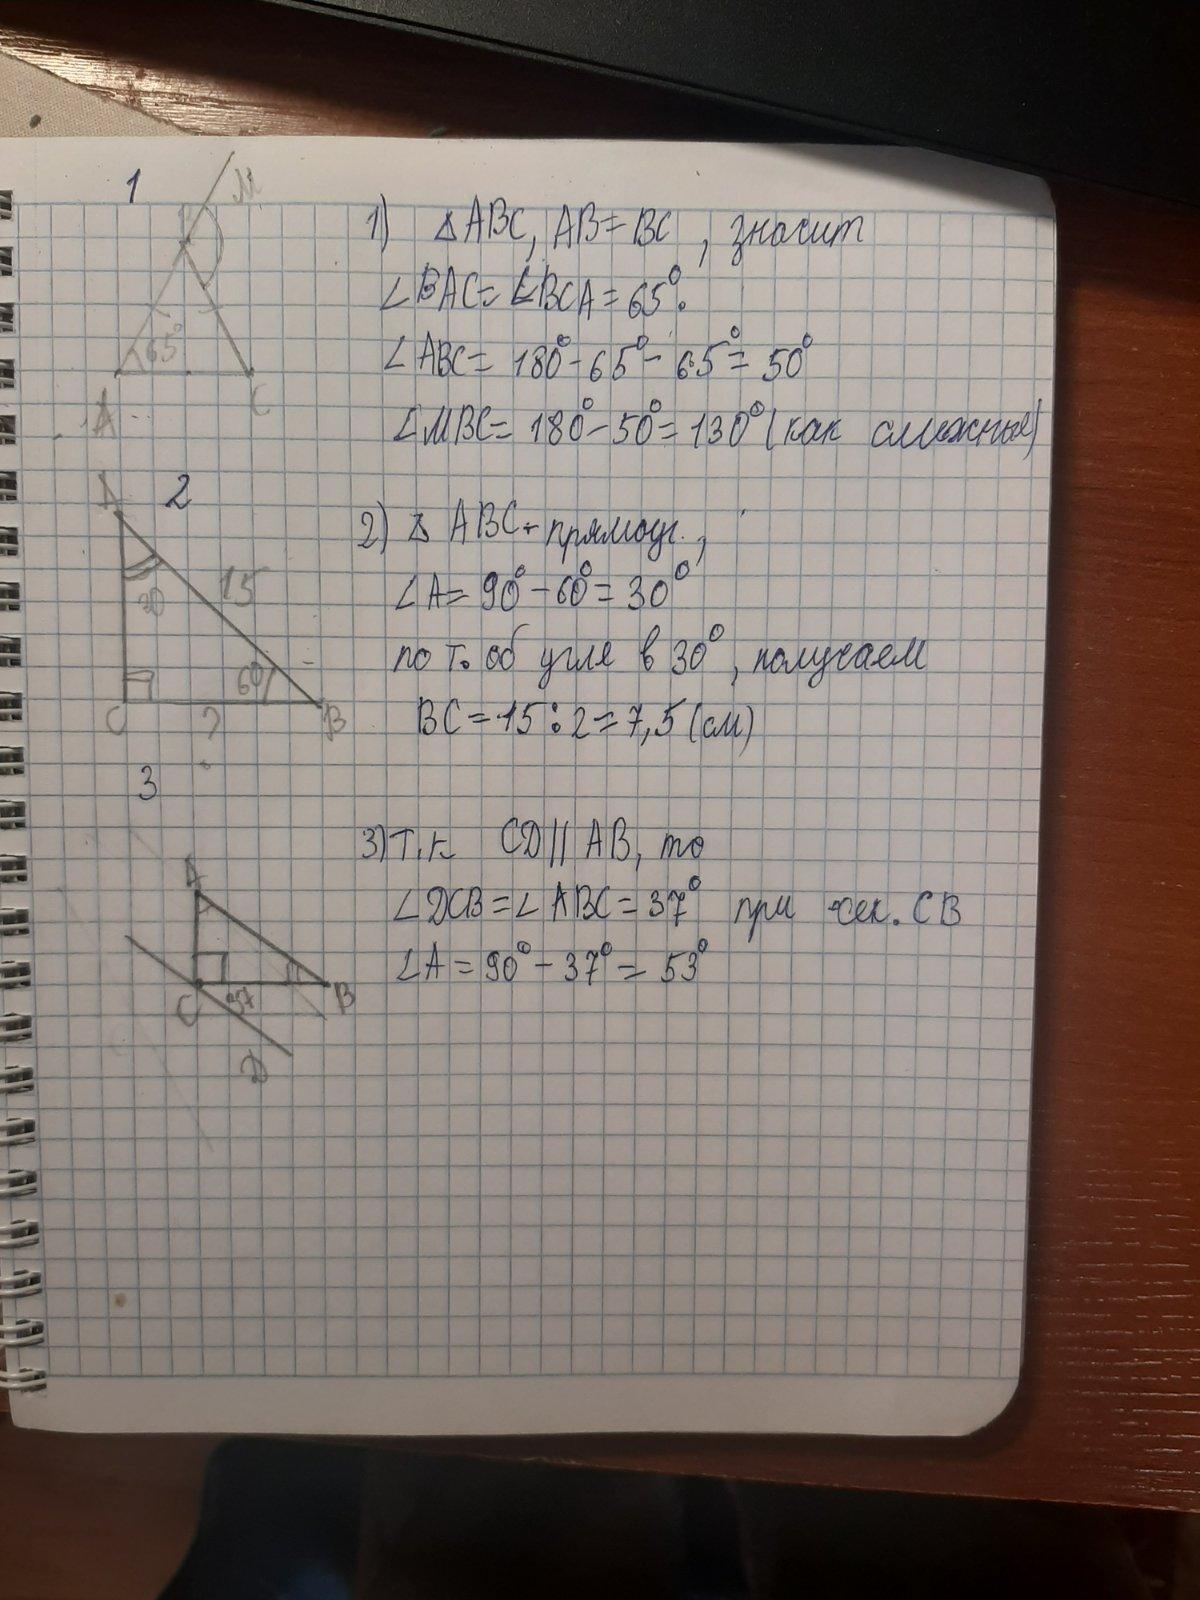 1
M
B
65°
A
C
1) △ABC, AB=BC, значит
∠BAC=∠BCA=65°.
∠ABC=180°-65°-65°=50°
∠MBC=180°-50°=130° (как смежные)
2
A
30
15
60
C
?
B
2) △ABC - прямоуг.,
∠A=90°-60°=30°
по т. об угле в 30°, получаем
BC=15:2=7,5 (см)
3
A
C
37
B
D
3) Т.к CD||AB, то
∠DCB=∠ABC=37° при сек. CB
∠A=90°-37°=53°